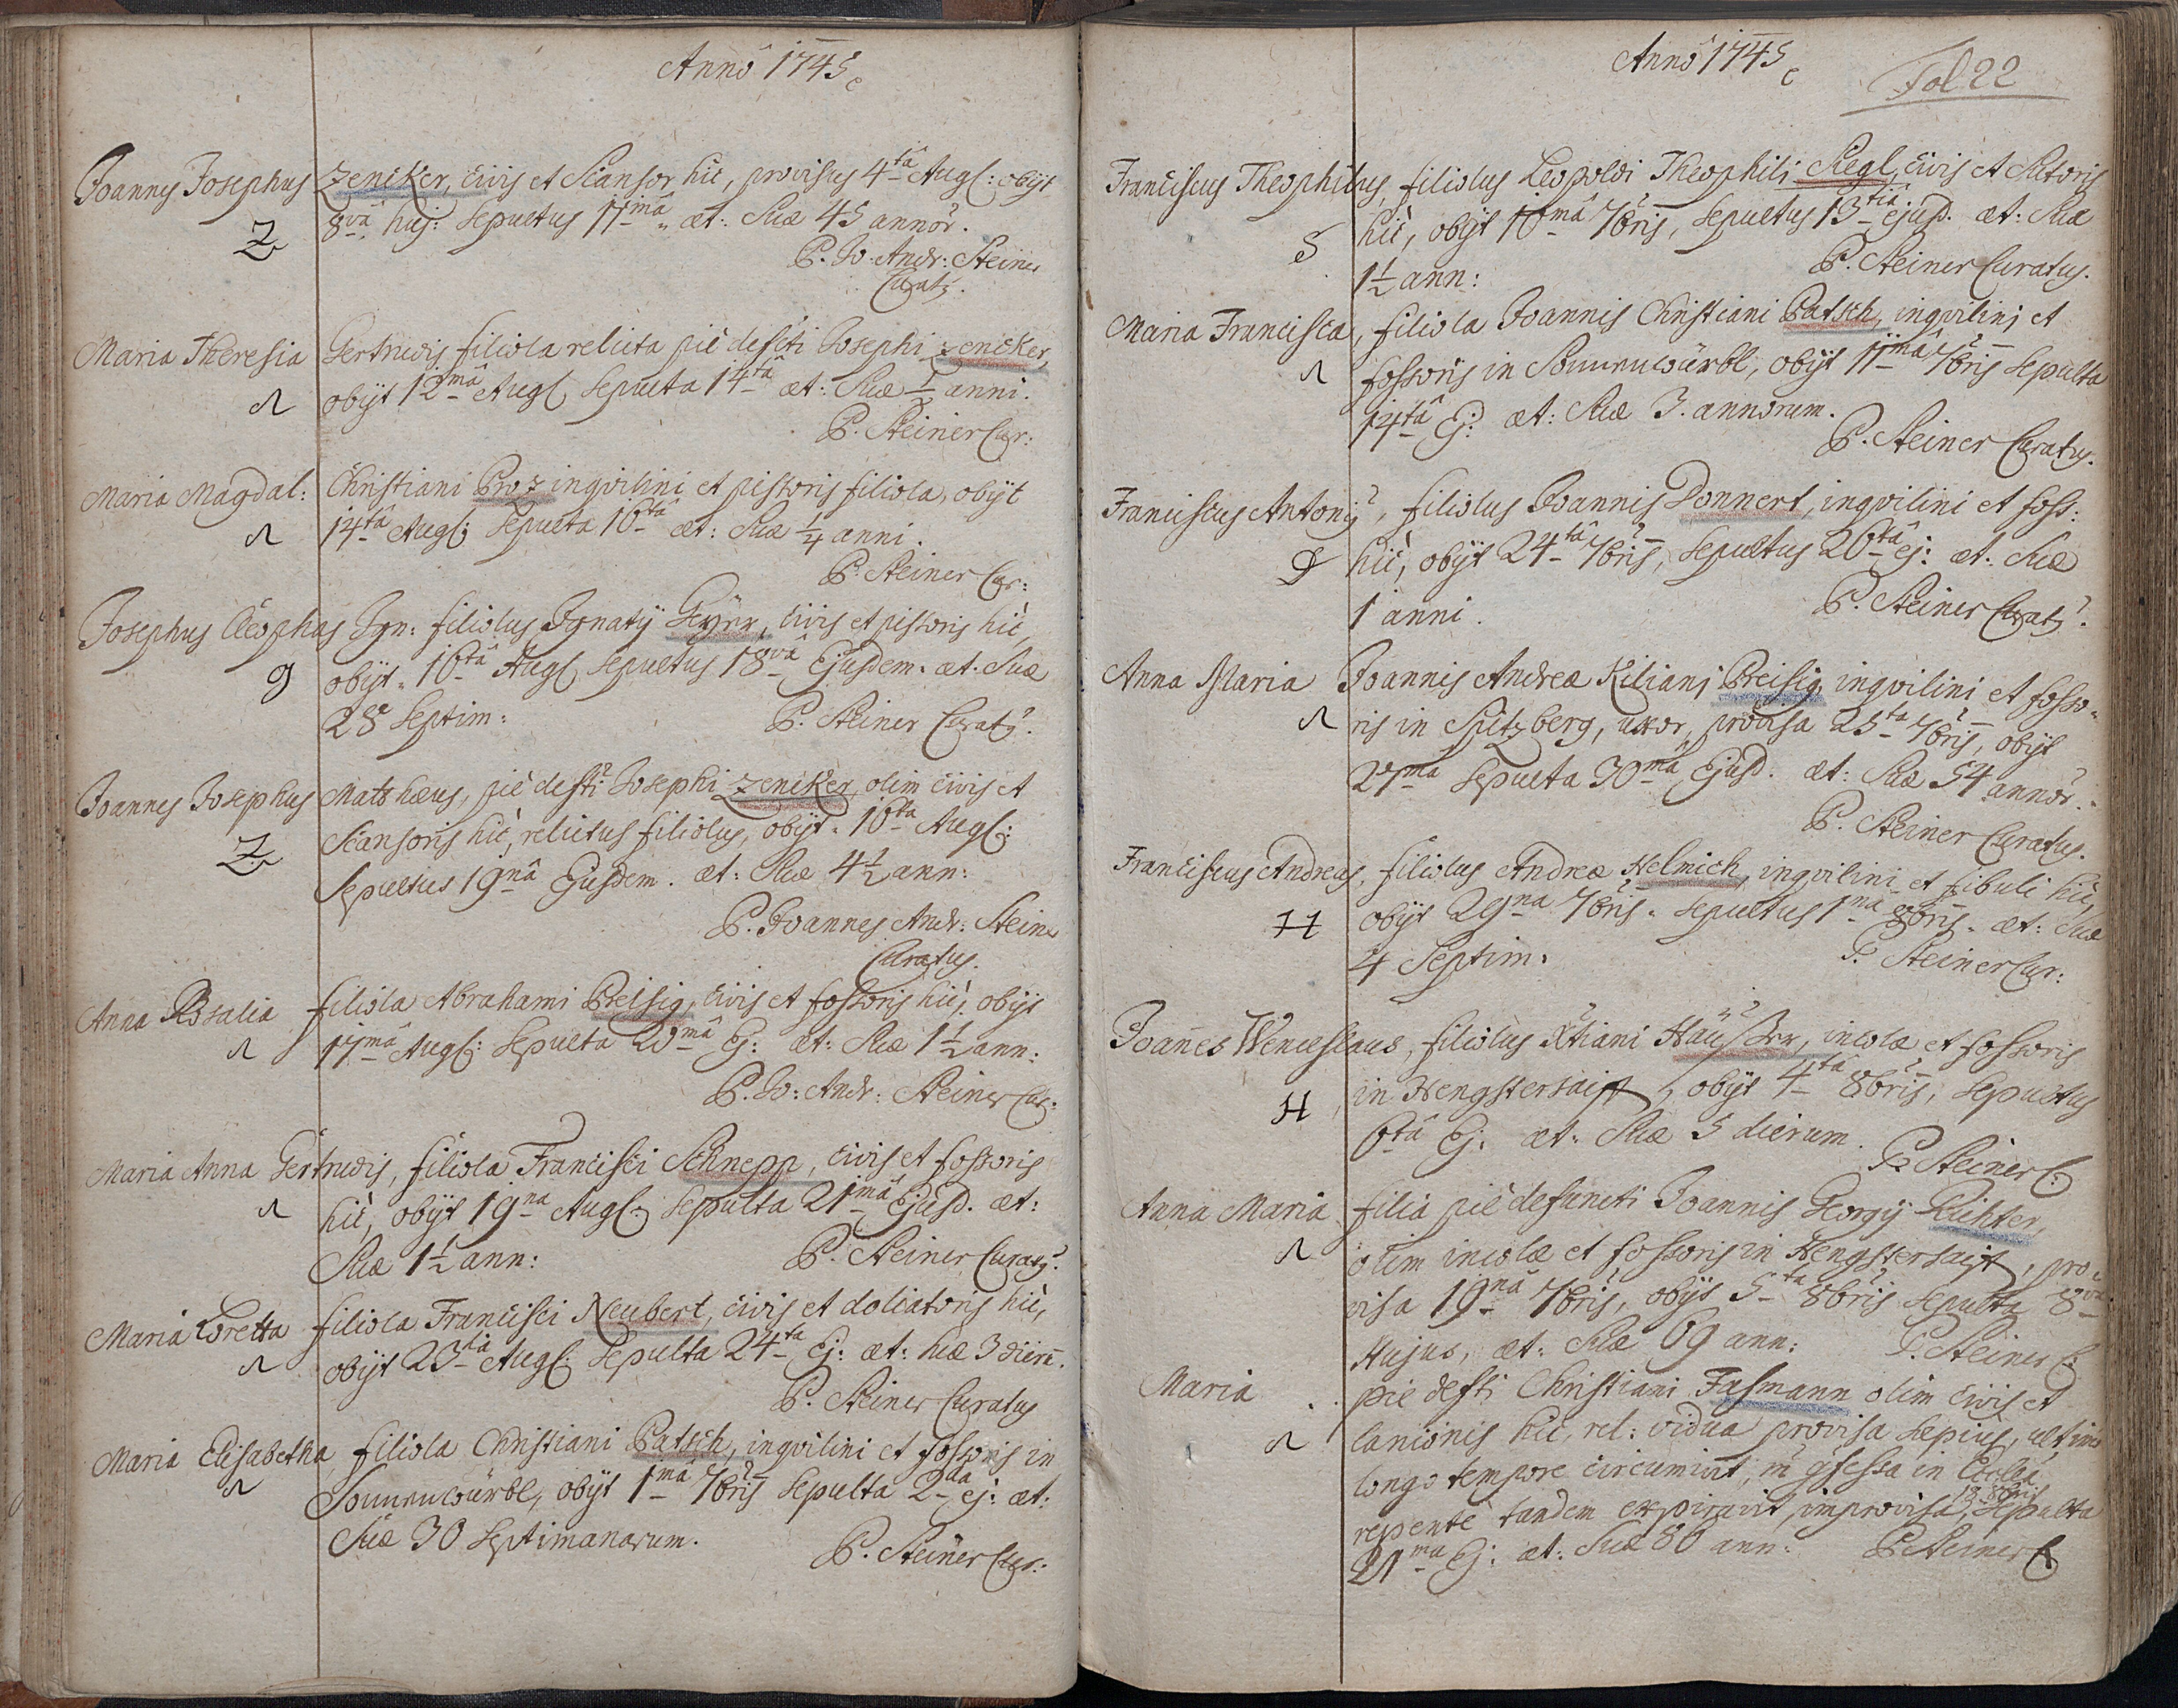 Anno 1745
Joannes Josephus Zencker, civis et Scansor hic, provisus 4tâ Augs: obijt
Z 8vâ huj: Sepultus 11mâ æt: Suæ 45 annor.
P. Jo. Andr: Steiner
Curatus.
Maria Theresia Gertrudis filiola relicta piè defcti Josephi Zencker,
obijt 12mâ Augs Sepulta 14tâ æt: Suæ anni.
P. Steiner Cur:
Maria Magdal: Christiani Proz inqvilini et pistoris filiola, obijt
14tâ Augs: Sepulta 16tâ æt: Suæ 1/4 anni.
P. Steiner Cur:
Josephus Cleophas Ign: filiolus Ignatij Geyer, civis et pistoris hic,
obijt 16tâ Augs sepultus 18vâ Ejusdem. æt. Suæ
28 Septim: P. Steiner Curatus.
Joannes Josephus Matthæus, piè defcti Josephi Zencker, olim civis et
Z Scansoris hic, relictus filiolus, obijt 16ta Augs:
Sepultus 19nâ Ejusdem. æt: Suæ 4 1/2 ann:
P. Joannes Andr: Steiner
Curatus.
Anna Rosalia filiola Abrahami Preisig, civis et fossoris hic, obijt
17mâ Augs: Sepulta 20mâ Ej: æt: Suæ 1 1/2 ann:
P. Jo: Andr: Steiner Cur:
Maria Anna Gertrudis, filiola Francisci Schnepp, civis et fossoris
hic, obijt 19na Augs: Sepulta 21mâ Ejusd. æt:
Suæ 1 1/2 ann: P. Steiner Curatus.
Maria Loretta filiola Francisci Neubert, civis et doliatoris hic,
obijt 23tiâ Augs: Sepulta 24ta Ej: æt: suæ 3 dierū.
P. Steiner Curatus
Maria Elisabetha filiola Christiani Patsch, inqvilini et fossoris in
Sonnenwürbl, obijt 1mâ 7bris Sepulta 2da ej: æt:
Suæ 30 Septimanarum. P. Steiner Cur:
Anno 1745 Fol 22
Franciscus Theophilus, filiolus Leopoldi Theophili Siegl, civis et Sutoris
S hic, obijt 10mâ 7bris, sepultus 13tiâ ejusd. æt: Suæ
1 1/2 ann: P. Steiner Curatus.
Maria Francisca, filiola Joannis Christiani Patsch, inqvilini et
fossoris in Sonnenwürbl, obijt 11mâ 7bris sepulta
14tâ Ej: æt: Suæ 3. annorum.
P. Steiner Curatus.
Franciscus Antonij, filiolus Joannis Donnert, inqvilini et foss:
hic, obijt 24tâ 7bris, Sepultus 26tâ ej: æt: Suæ
1 anni. P. Steiner Curatus.
Anna Maria Joannis Andreæ Kiliani Preisig, inqvilini et fosso-
ris in Spitzberg, uxor, provisa 25ta 7bris, obijt
27ma sepulta 30mâ Ejusd. æt: Suæ 54 annor.
P. Steiner Curatus.
Franciscus Andreas, filiolus Andreæ Helmich, inqvilini et fibuli hic,
H obijt 29na 7bris. sepultus 1ma 8bris. æt: Suæ
4 Septim. P. Steiner Cur:
Joañes Wenceslaus, filiolus Xtiani Häußler, incolæ et fossoris
H in Hengstersaifft, obijt 4tâ 8bris, sepultus
6tâ Ej: æt: Suæ 5 dierum.
P. Steiner C:
Anna Maria filia piè defuncti Joannis Georgij Richter,
olim incolæ et fossoris in Hengstersaijft, pro-
visa 19nâ 7bris, obijt 5ta 8bris sepulta 8va
Hujus, æt: Suæ 69 ann: P. Steiner C:
Maria pie defcti Christiani Fasmann olim civis et
lanionis hic, rel: vidua provisa sæpius, ultimo
longo tempore circumivit, in Eccles
18 8bris
repente tandem expiravit, improvisa, sepulta
21ma Ej: æt: Suæ 80 ann: P. Steiner C